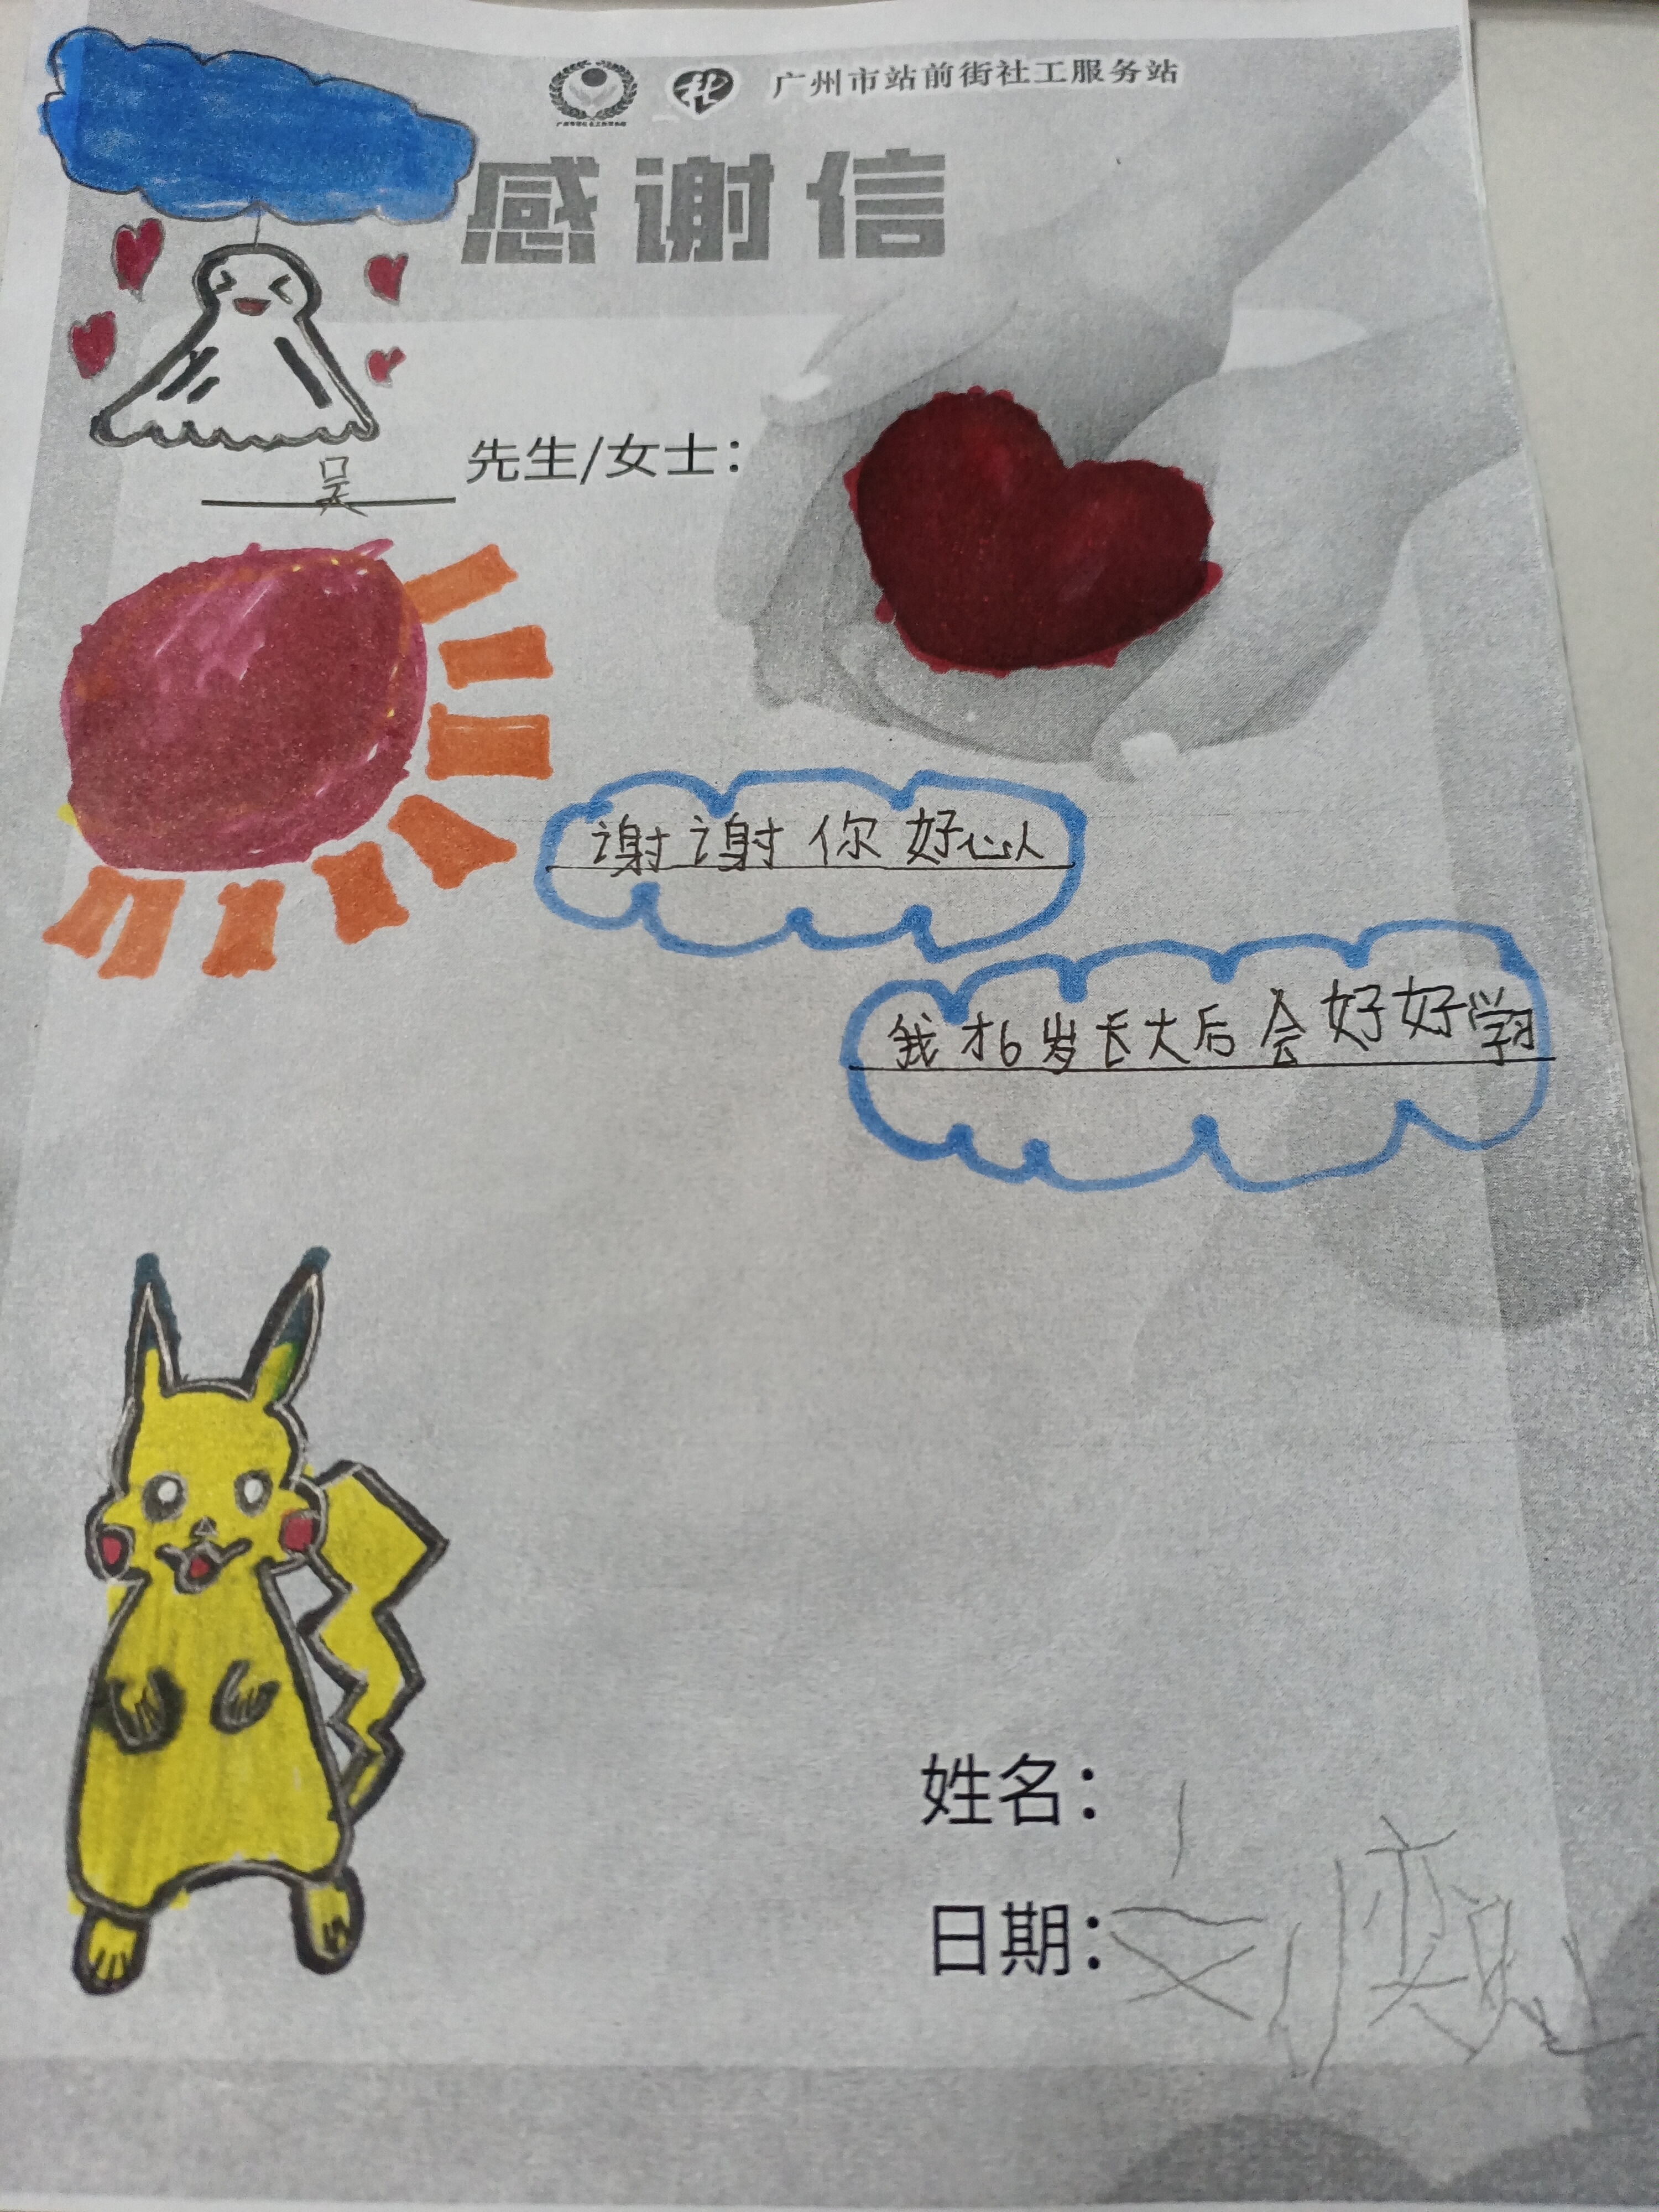 广州市站前街社工服务站
感谢信
吴 先生/女士：
谢谢你好心人
我才6岁长大后会好好学习
姓名：
日期：